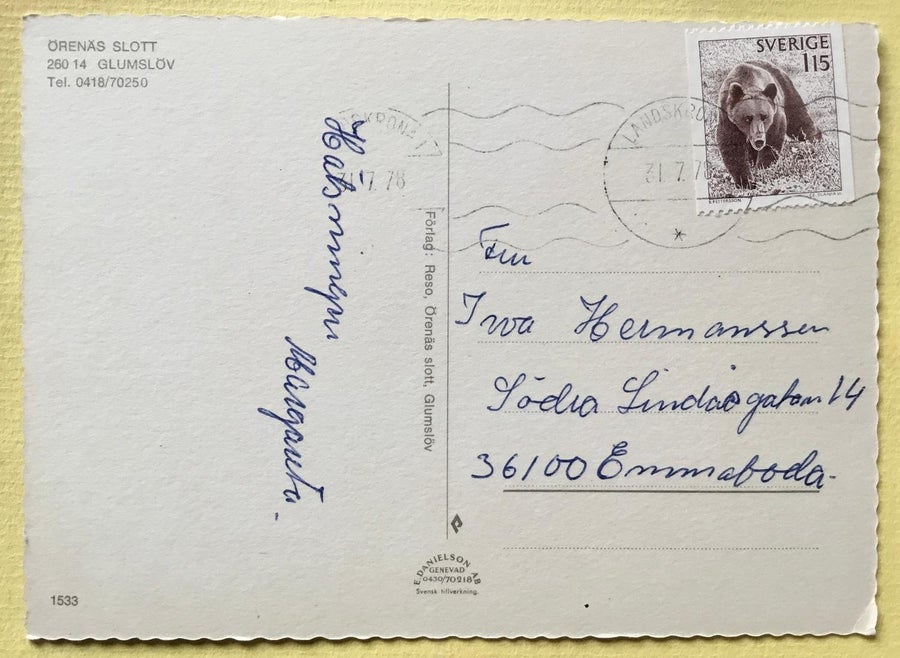 ÖRENÄS SLOTT
260 14 GLUMSLÖV
Tel. 0418/70250
SVERIGE
115
LANDSKRONA
31.7.78
31.7.78
Margareta.
Förlag: Reso, Örenäs slott, Glumslöv
Fru
Iwa Hermanssen
Södra Lindåsgatan 14
36100 Emmaboda.
E. DANIELSON AB
GENEVAD
0430/70218
Svensk tillverkning.
1533